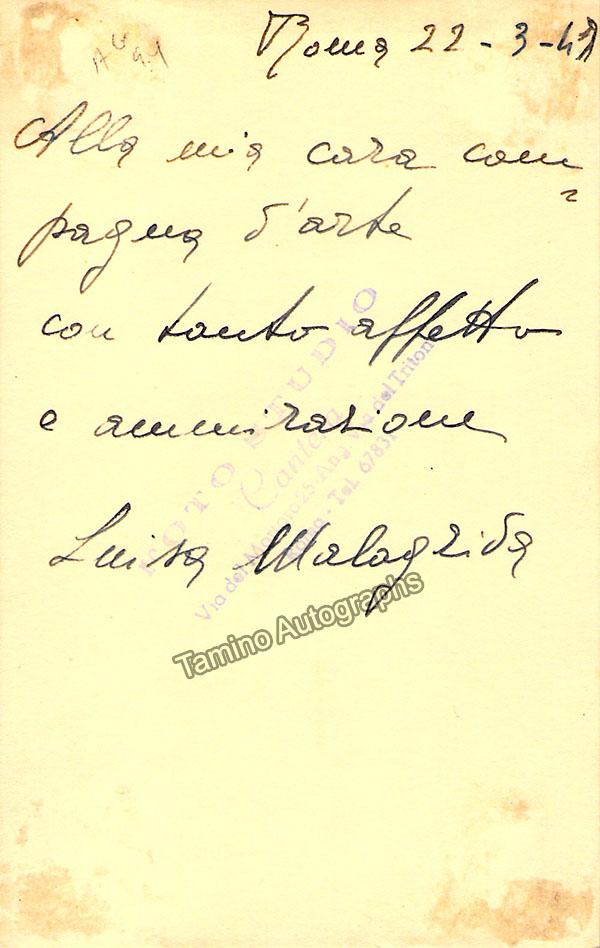 Roma 22-3-41
Alla mia cara com=
pagna d'arte
con tanto affetto
e ammirazione
Luisa Malagrida
FOTO STUDIO
Cantera
Via del Tritone
Tel. 6783
Tamino Autographs